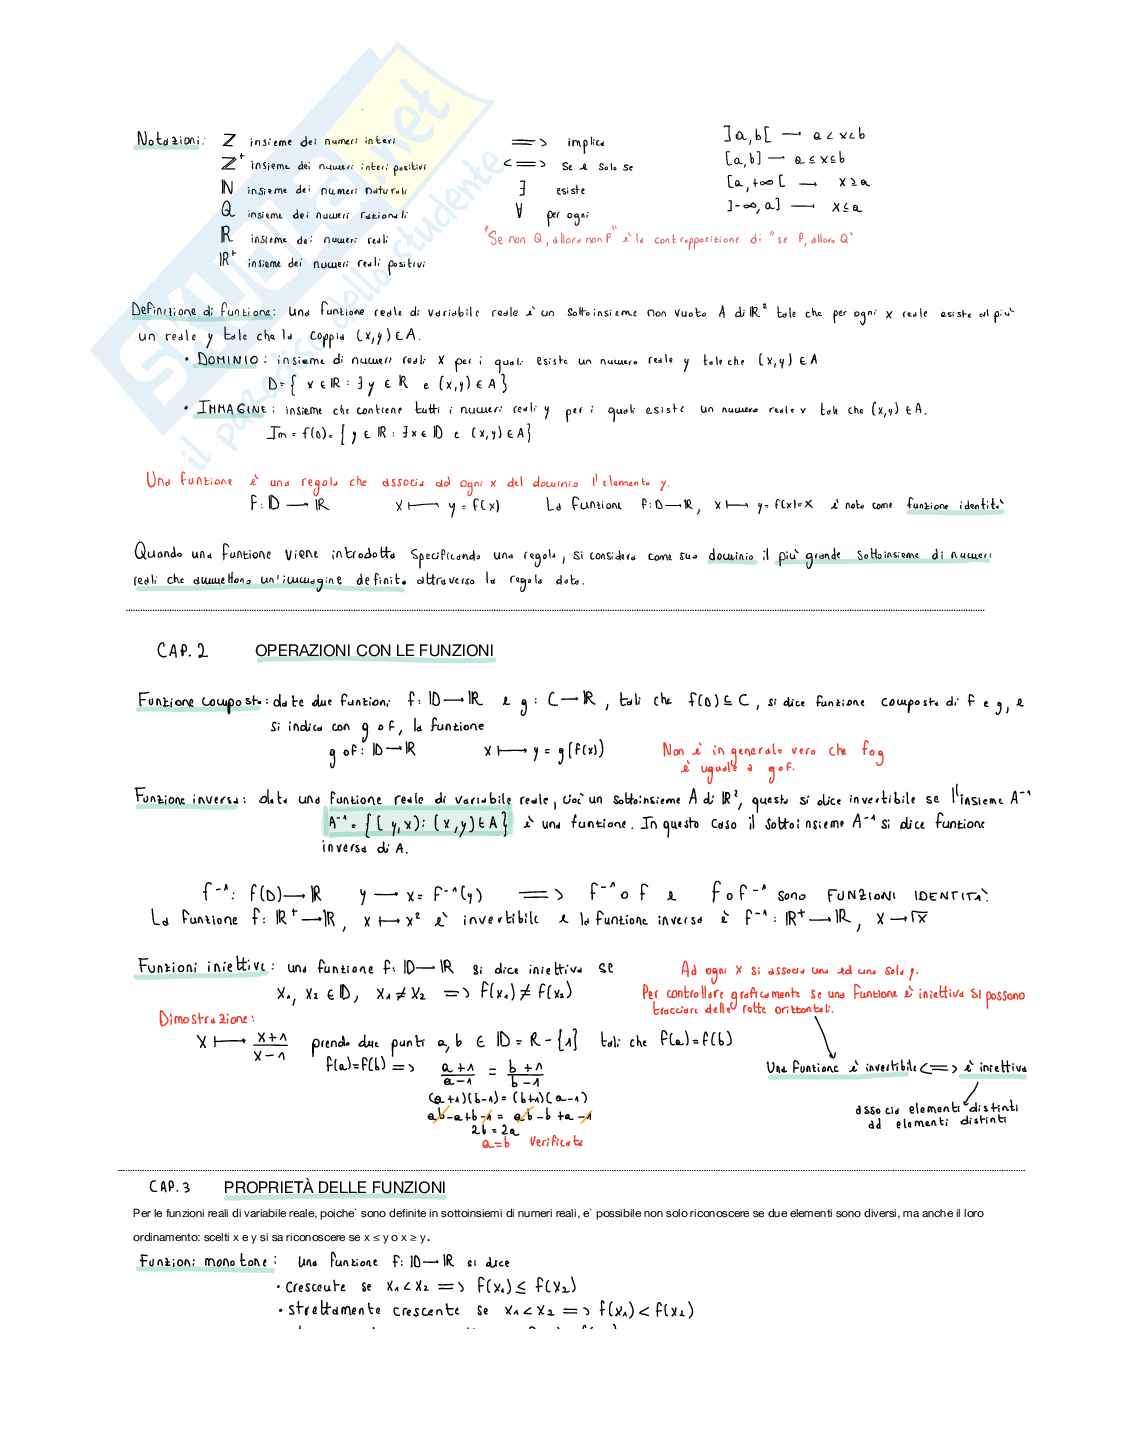 SKUOLA.net
il paradiso dello studente
Notazioni: ℤ insieme dei numeri interi
ℤ⁺ insieme dei numeri interi positivi
ℕ insieme dei numeri naturali
ℚ insieme dei numeri razionali
ℝ insieme dei numeri reali
ℝ⁺ insieme dei numeri reali positivi
=> implica
<=> se e solo se
∃ esiste
∀ per ogni
]a,b[ → a < x < b
[a,b] → a ≤ x ≤ b
[a,+∞[ → x ≥ a
]-∞,a] → x ≤ a
"Se non Q, allora non P" è la contrapposizione di "se P, allora Q"
Definizione di funzione: una funzione reale di variabile reale è un sottoinsieme non vuoto A di ℝ² tale che per ogni x reale esiste al più
un reale y tale che la coppia (x,y) ∈ A.
• DOMINIO: insieme di numeri reali x per i quali esiste un numero reale y tale che (x,y) ∈ A
D = { x ∈ ℝ : ∃ y ∈ ℝ e (x,y) ∈ A }
• IMMAGINE: insieme che contiene tutti i numeri reali y per i quali esiste un numero reale x tale che (x,y) ∈ A.
Im = f(D) = { y ∈ ℝ : ∃ x ∈ D e (x,y) ∈ A }
Una funzione è una regola che associa ad ogni x del dominio l'elemento y.
f: D → ℝ x ↦ y = f(x) La funzione f: D → ℝ, x ↦ y = f(x) = x è nota come funzione identità
Quando una funzione viene introdotta specificando una regola, si considera come suo dominio il più grande sottoinsieme di numeri
reali che ammettono un'immagine definita attraverso la regola data.
CAP. 2 OPERAZIONI CON LE FUNZIONI
Funzione composta: date due funzioni f: D → ℝ e g: C → ℝ, tali che f(D) ⊆ C, si dice funzione composta di f e g, e
si indica con g o f, la funzione
g o f: D → ℝ x ↦ y = g(f(x))
Non è in generale vero che f o g
è uguale a g o f.
Funzione inversa: data una funzione reale di variabile reale, cioè un sottoinsieme A di ℝ², questo si dice invertibile se l'insieme A⁻¹
A⁻¹ = { (y,x) : (x,y) ∈ A } è una funzione. In questo caso il sottoinsieme A⁻¹ si dice funzione
inversa di A.
f⁻¹: f(D) → ℝ y → x = f⁻¹(y) => f⁻¹ o f e f o f⁻¹ sono FUNZIONI IDENTITÀ.
La funzione f: ℝ⁺ → ℝ, x ↦ x² è invertibile e la funzione inversa è f⁻¹: ℝ⁺ → ℝ, x → √x
Funzioni iniettive: una funzione f: D → ℝ si dice iniettiva se
x₁, x₂ ∈ D, x₁ ≠ x₂ => f(x₁) ≠ f(x₂)
Ad ogni x si associa una ed una sola y.
Per controllare graficamente se una funzione è iniettiva si possono
tracciare delle rette orizzontali.
Dimostrazione:
x ↦ (x+1)/(x-1) prendo due punti a, b ∈ D = R - {1} tali che f(a) = f(b)
f(a) = f(b) => (a+1)/(a-1) = (b+1)/(b-1)
(a+1)(b-1) = (b+1)(a-1)
ab - a + b - 1 = ab - b + a - 1
2b = 2a
a = b verificata
Una funzione è invertibile <=> è iniettiva
associa elementi distinti
ad elementi distinti
CAP. 3 PROPRIETÀ DELLE FUNZIONI
Per le funzioni reali di variabile reale, poiche` sono definite in sottoinsiemi di numeri reali, e` possibile non solo riconoscere se due elementi sono diversi, ma anche il loro
ordinamento: scelti x e y si sa riconoscere se x ≤ y o x ≥ y.
Funzioni monotone: Una funzione f: D → ℝ si dice
• crescente se x₁ < x₂ => f(x₁) ≤ f(x₂)
• strettamente crescente se x₁ < x₂ => f(x₁) < f(x₂)